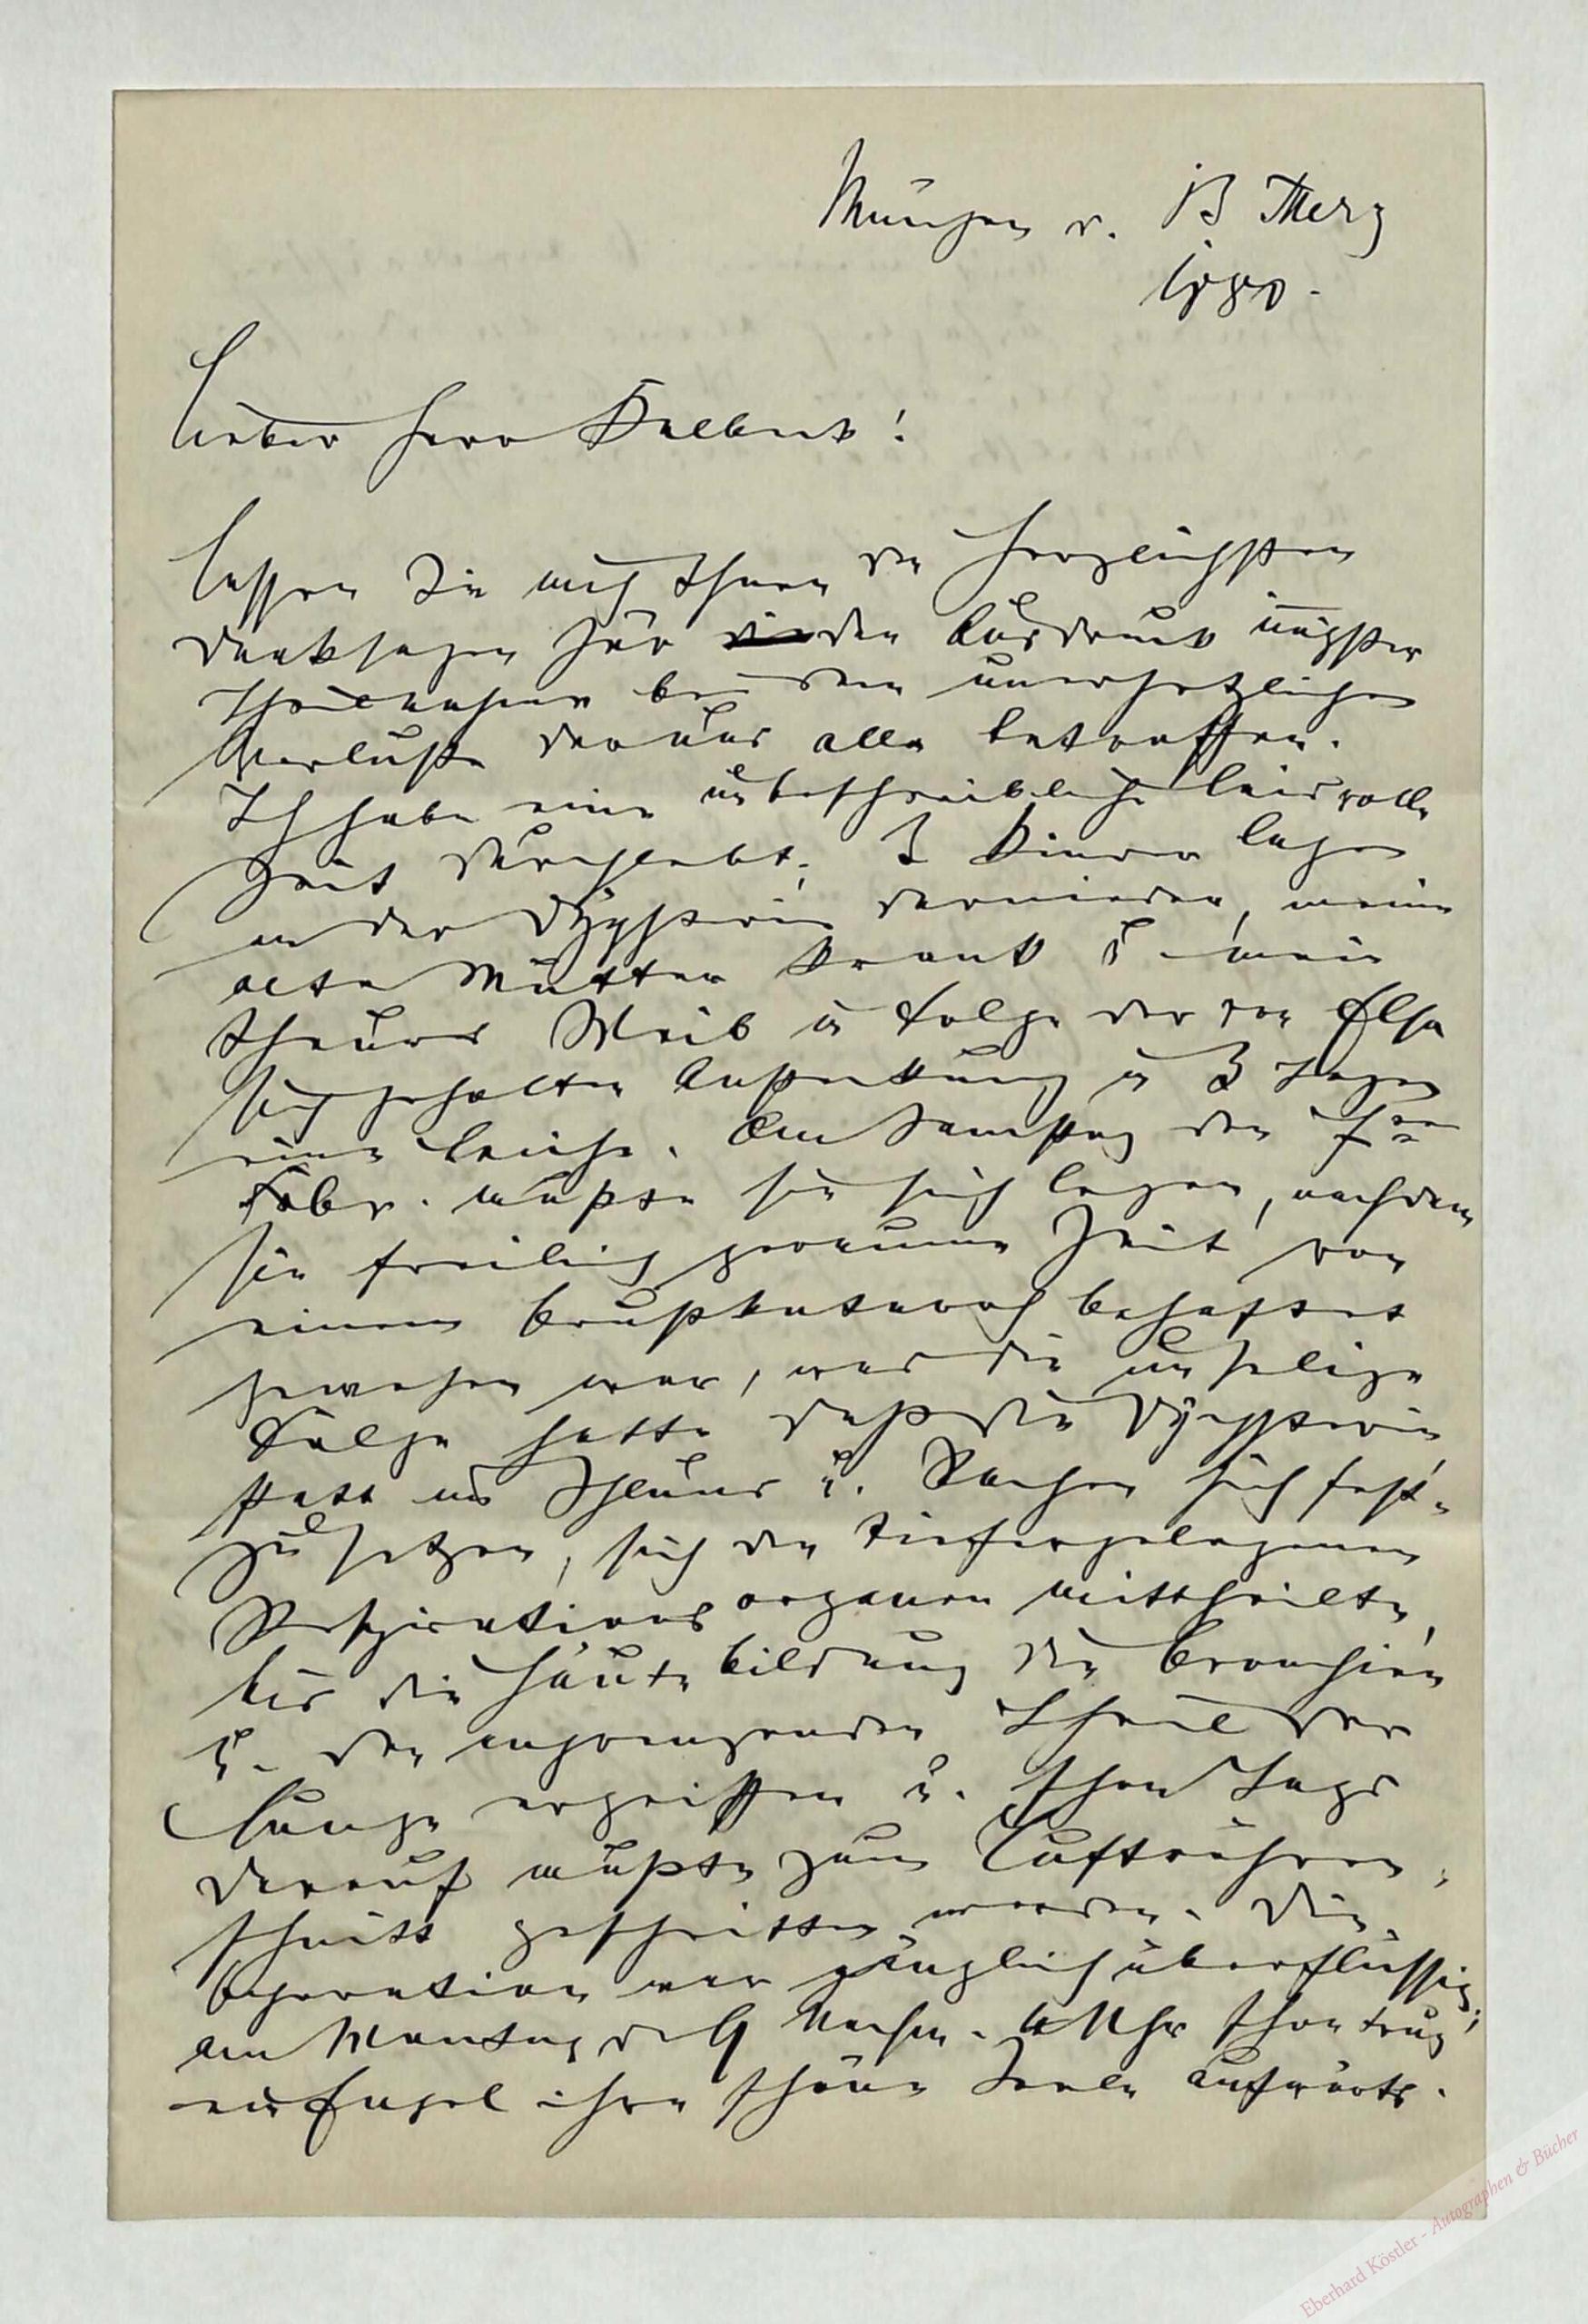 München d. 13 Merz
1880.
Lieber Herr Kalbeck!
Lassen Sie mich Ihnen den herzlichsten
Dank sagen für den Ausdruck innigster
Theilnahme bei dem unersetzlichen
Verluste der uns alle betroffen.
Ich habe eine unbeschreibliche leidvolle
Zeit durchlebt; 3 Kinder lagen
an der Dyphterie darnieder, meine
alte Mutter krank u. mein
theures Weib in Folge der von Elsa
sich geholten Ansteckung in 3 Tagen
eine Leiche. Am Samstag den
Febr. mußte sie sich legen, nachdem
sie freilich geraume Zeit von
einem Brustkatarrh behaftet
gewesen war, was die unselige
Folge hatte daß die Dyphterie,
statt im Schlund u. Rachen sich fest-
zu setzen, sich den tiefergelegenen
Respirationsorganen mittheilte,
bis die Häutebildung die Bronchien
u. den angrenzenden Theil der
Lunge ergriffen u. schon Tags
darauf mußte zum Luftröhren-
schnitt geschritten werden. Die
Operation war gänzlich überflüssig;
am Montag d. 9 Nachm. 4 Uhr schon trug
ein Engel ihre schöne Seele aufwärts.
Eberhard Köstler - Autographen & Bücher